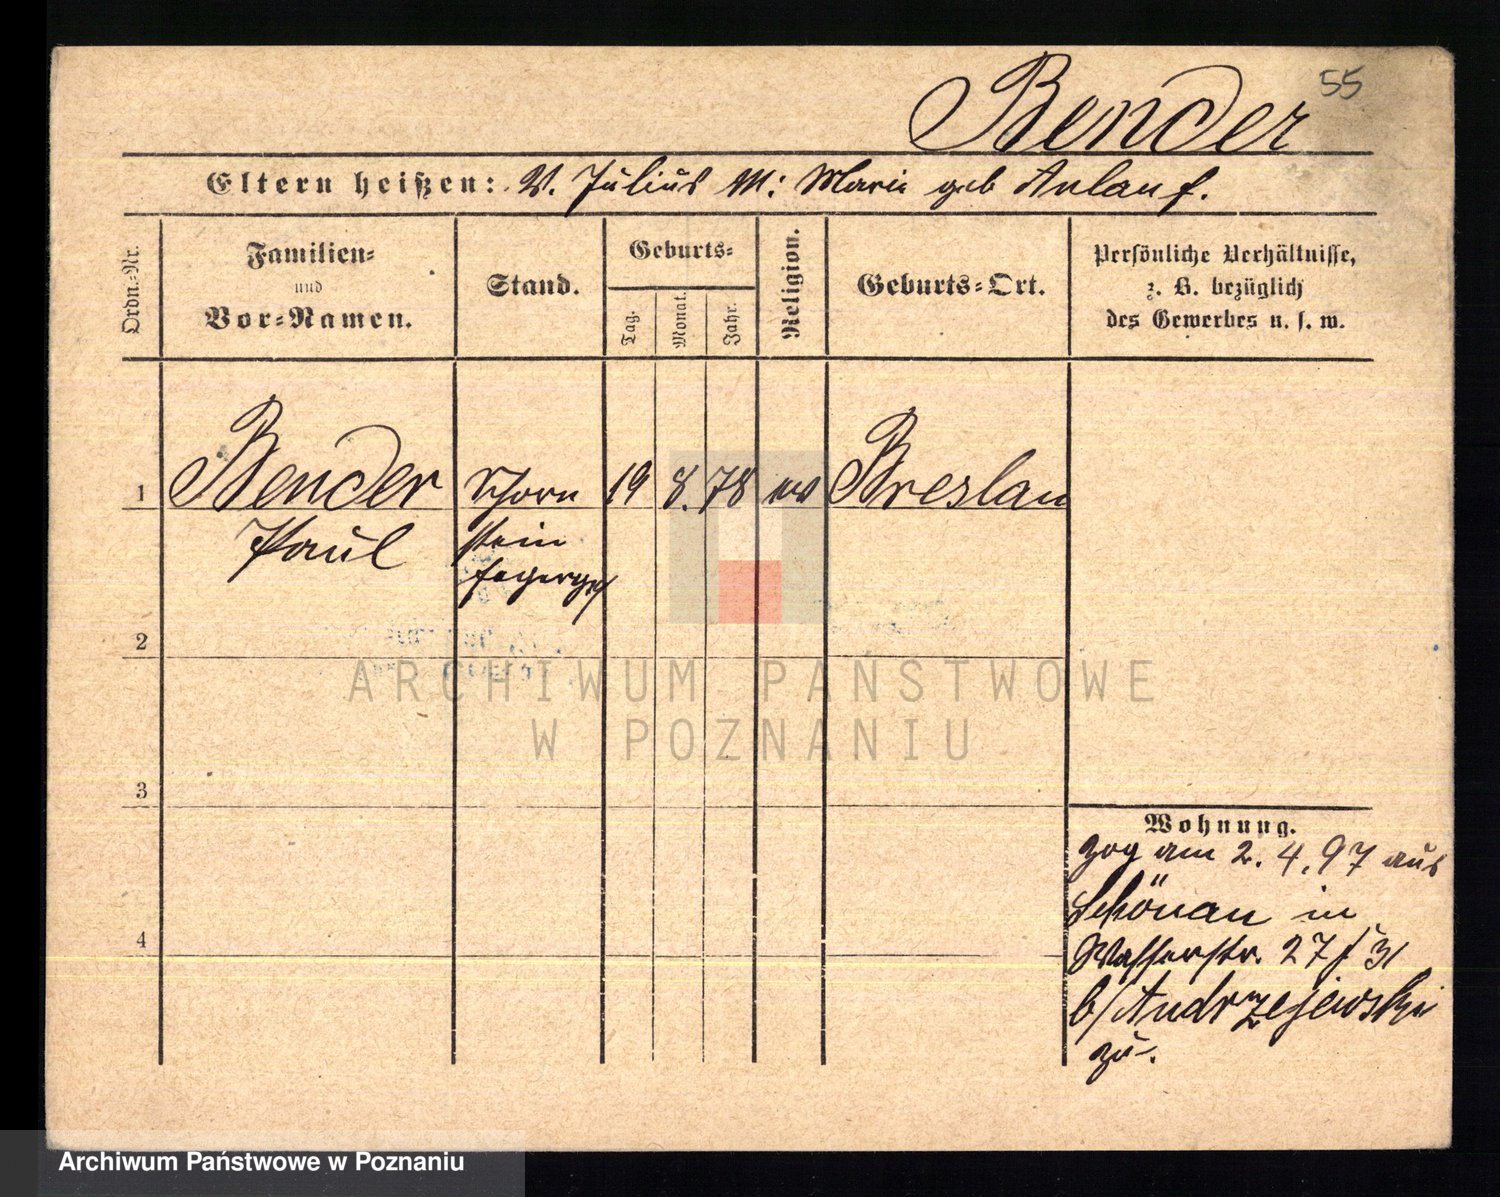 55
Bender
Eltern heißen: V. Julius M: Marie geb Anlauf.
Ordn.-Nr.
Familien-
und
Vor-Namen.
Stand.
Geburts-
Tag.
Monat.
Jahr.
Religion.
Geburts-Ort.
Persönliche Verhältnisse,
z. B. bezüglich
des Gewerbes u. s. w.
1 Bender Schorn 19 8. 78 ev Breslau
Paul stein
fegerges
2
3
4
Wohnung.
zog am 2. 4. 97 aus
Schönau in
Wasserstr. 27 f 31
b/ Andrzejewski
zu.
ARCHIWUM PAŃSTWOWE
W POZNANIU
Archiwum Państwowe w Poznaniu